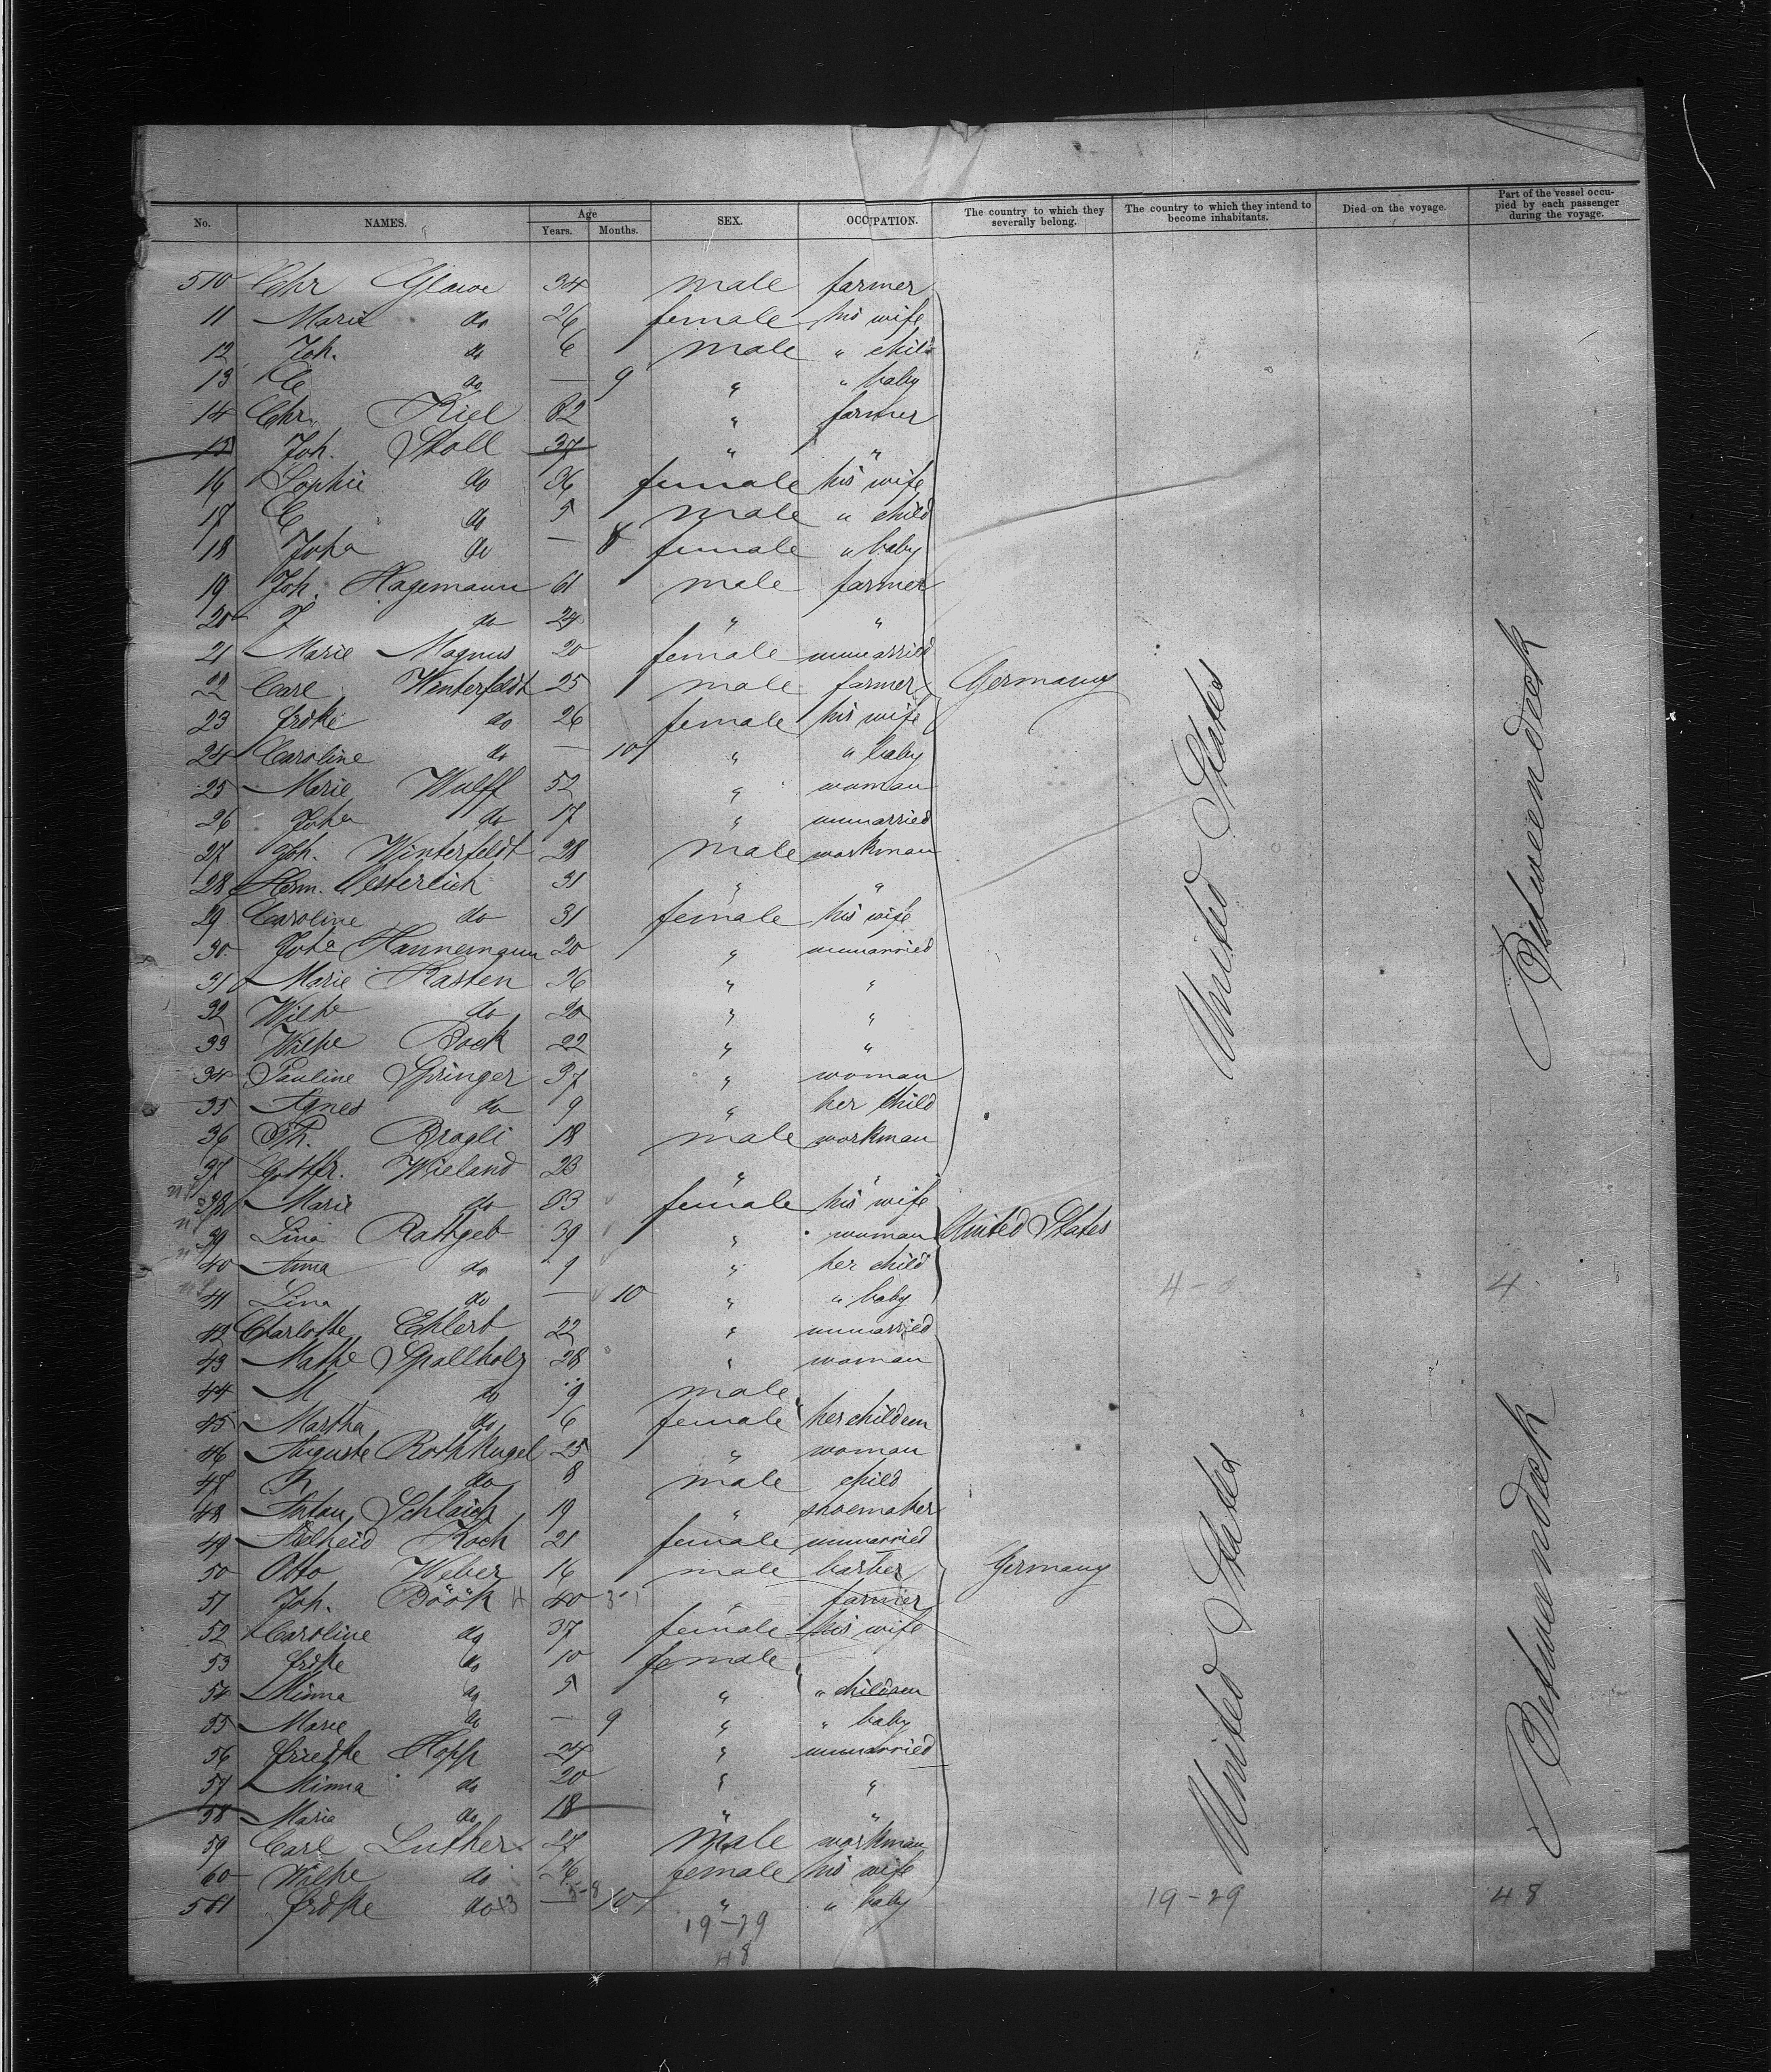 No. NAMES. Age Years. Months. SEX. OCCUPATION. The country to which they severally belong. The country to which they intend to become inhabitants. Died on the voyage. Part of the vessel occupied by each passenger during the voyage.
510 Chr Glawe 34 male farmer
11 Marie do 26 female his wife
12 Joh. do 6 male " child
13 do — 9 " " baby
14 Chr. Kiel 62 " farmer
15 Joh. Stoll 37 " "
16 Sophie do 36 female his wife
17 C do 5 male " child
18 Joha do — 8 female " baby
19 Joh. Hagemann 61 male farmer
20 J do 24 " "
21 Marie Magnus 20 female unmarried
22 Carl Winterfeldt 25 male farmer Germany
23 Frdke do 26 female his wife
24 Caroline do — 10 " " baby
25 Marie Wulff 52 " woman
26 Joha do 17 " unmarried
27 Joh. Winterfeldt 28 male workman
28 Herm. Oesterlich 31 " "
29 Caroline do 31 female his wife
30 Joha Hannemann 20 " unmarried
31 Marie Kasten 26 " "
32 Wilhe do 20 " "
33 Wilhe Bock 22 " "
34 Pauline Springer 37 " woman
35 Agnes do 9 " her child
36 Th. Brogli 18 male workman
37 Gottfr. Wieland 23 " "
38 Marie do 33 female his wife
39 Lina Rattgeb 39 " woman United States
40 Anna do 9 " her child
41 Lina do — 10 " " baby 4-0 4
42 Charlotte Ehlert 22 " unmarried
43 Mathe Spallholz 28 " woman
44 M do 9 male
45 Martha do 6 female her children
46 Auguste Rothkugel 25 " woman
47 R do 8 male child
48 Anton Schlaich 19 " shoemaker
49 Adelheid Koch 21 female unmarried
50 Otto Weber 16 male barber Germany
51 Joh. Böök 40 " farmer
52 Caroline do 37 female his wife
53 Frdke do 10 female
54 Minna do 5 " " children
55 Marie do — 9 " " baby
56 Friedke Hopp 24 " unmarried
57 Minna do 20 " "
58 Maria do 18 " "
59 Carl Luther 27 male workman
60 Wilhe do 26 female his wife
561 Frdke do — 10 " " baby 19-29 48
19-29
48
United States
Betweendeck
United States
Betweendeck